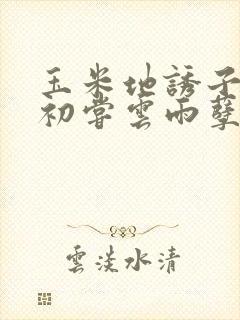 玉米地誘子
初嘗雲雨孽
雲淡水清